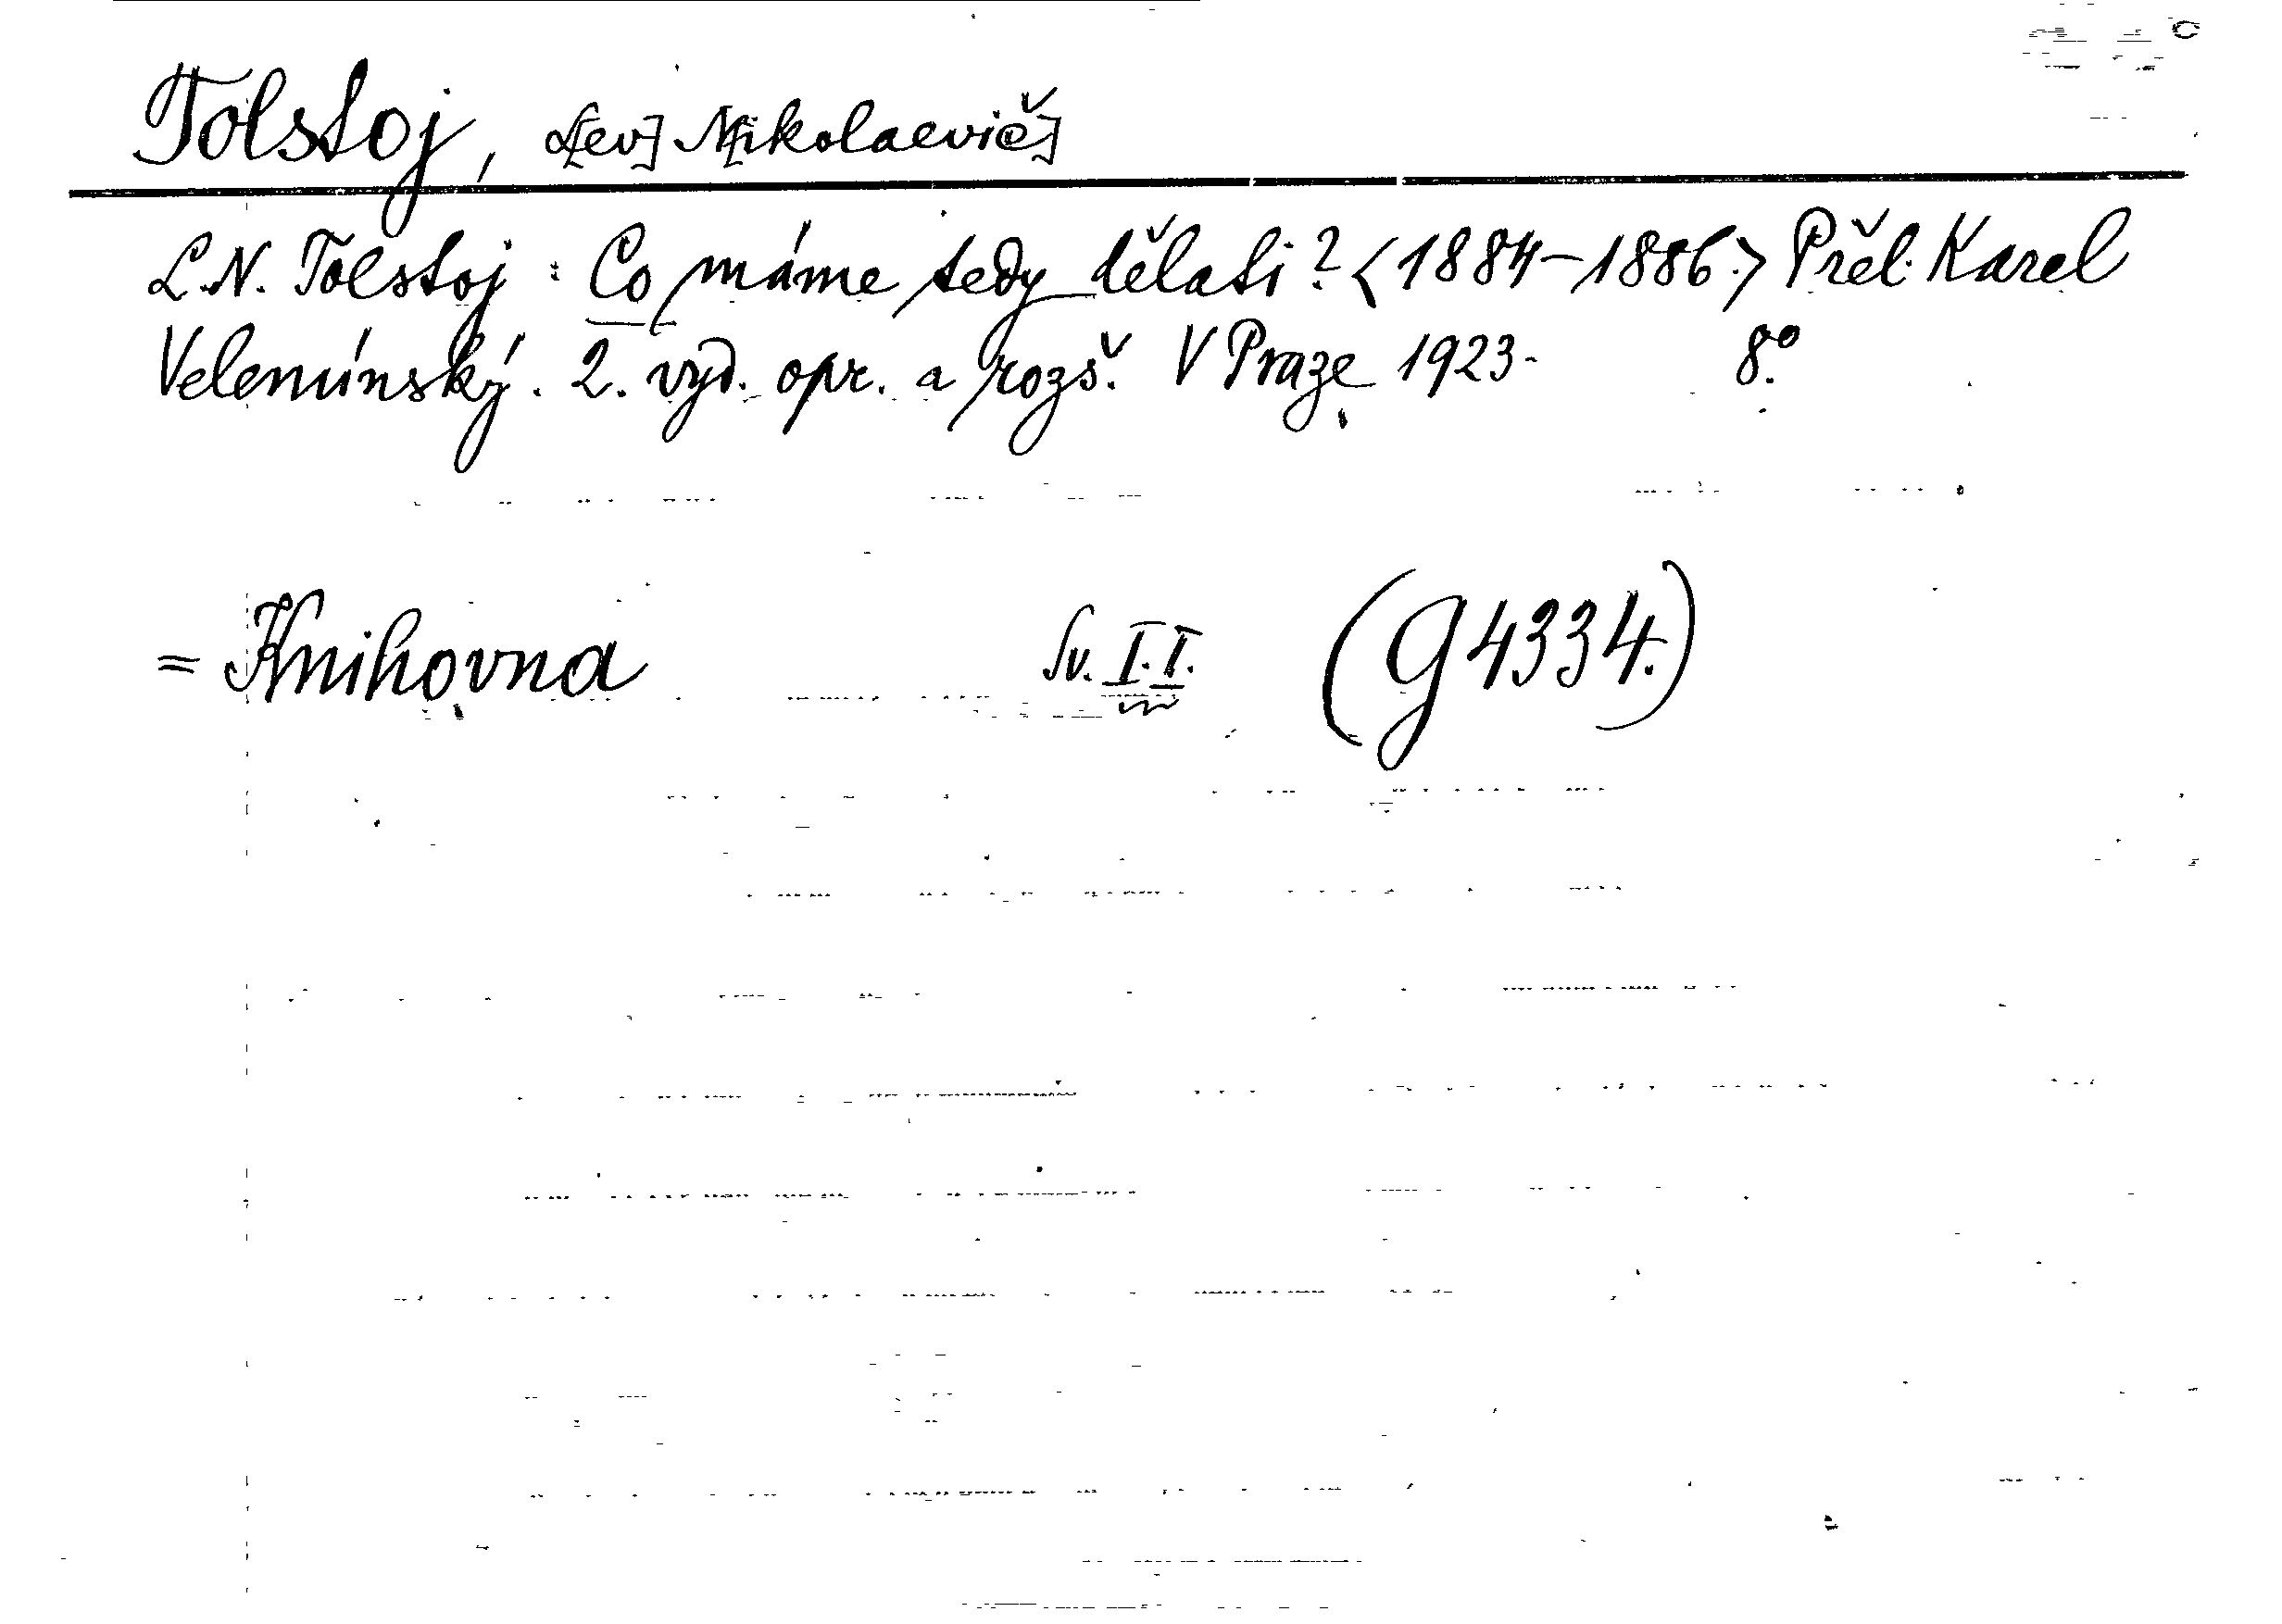 Tolstoj, L[ev] N[ikolaevič]
L. N. Tolstoj: Co máme tedy dělati? <1884-1886.> Přel. Karel
Velemínský. 2. vyd. opr. a rozš. V Praze 1923. 8°.
= Knihovna Sv. I.I. (G 4334.)